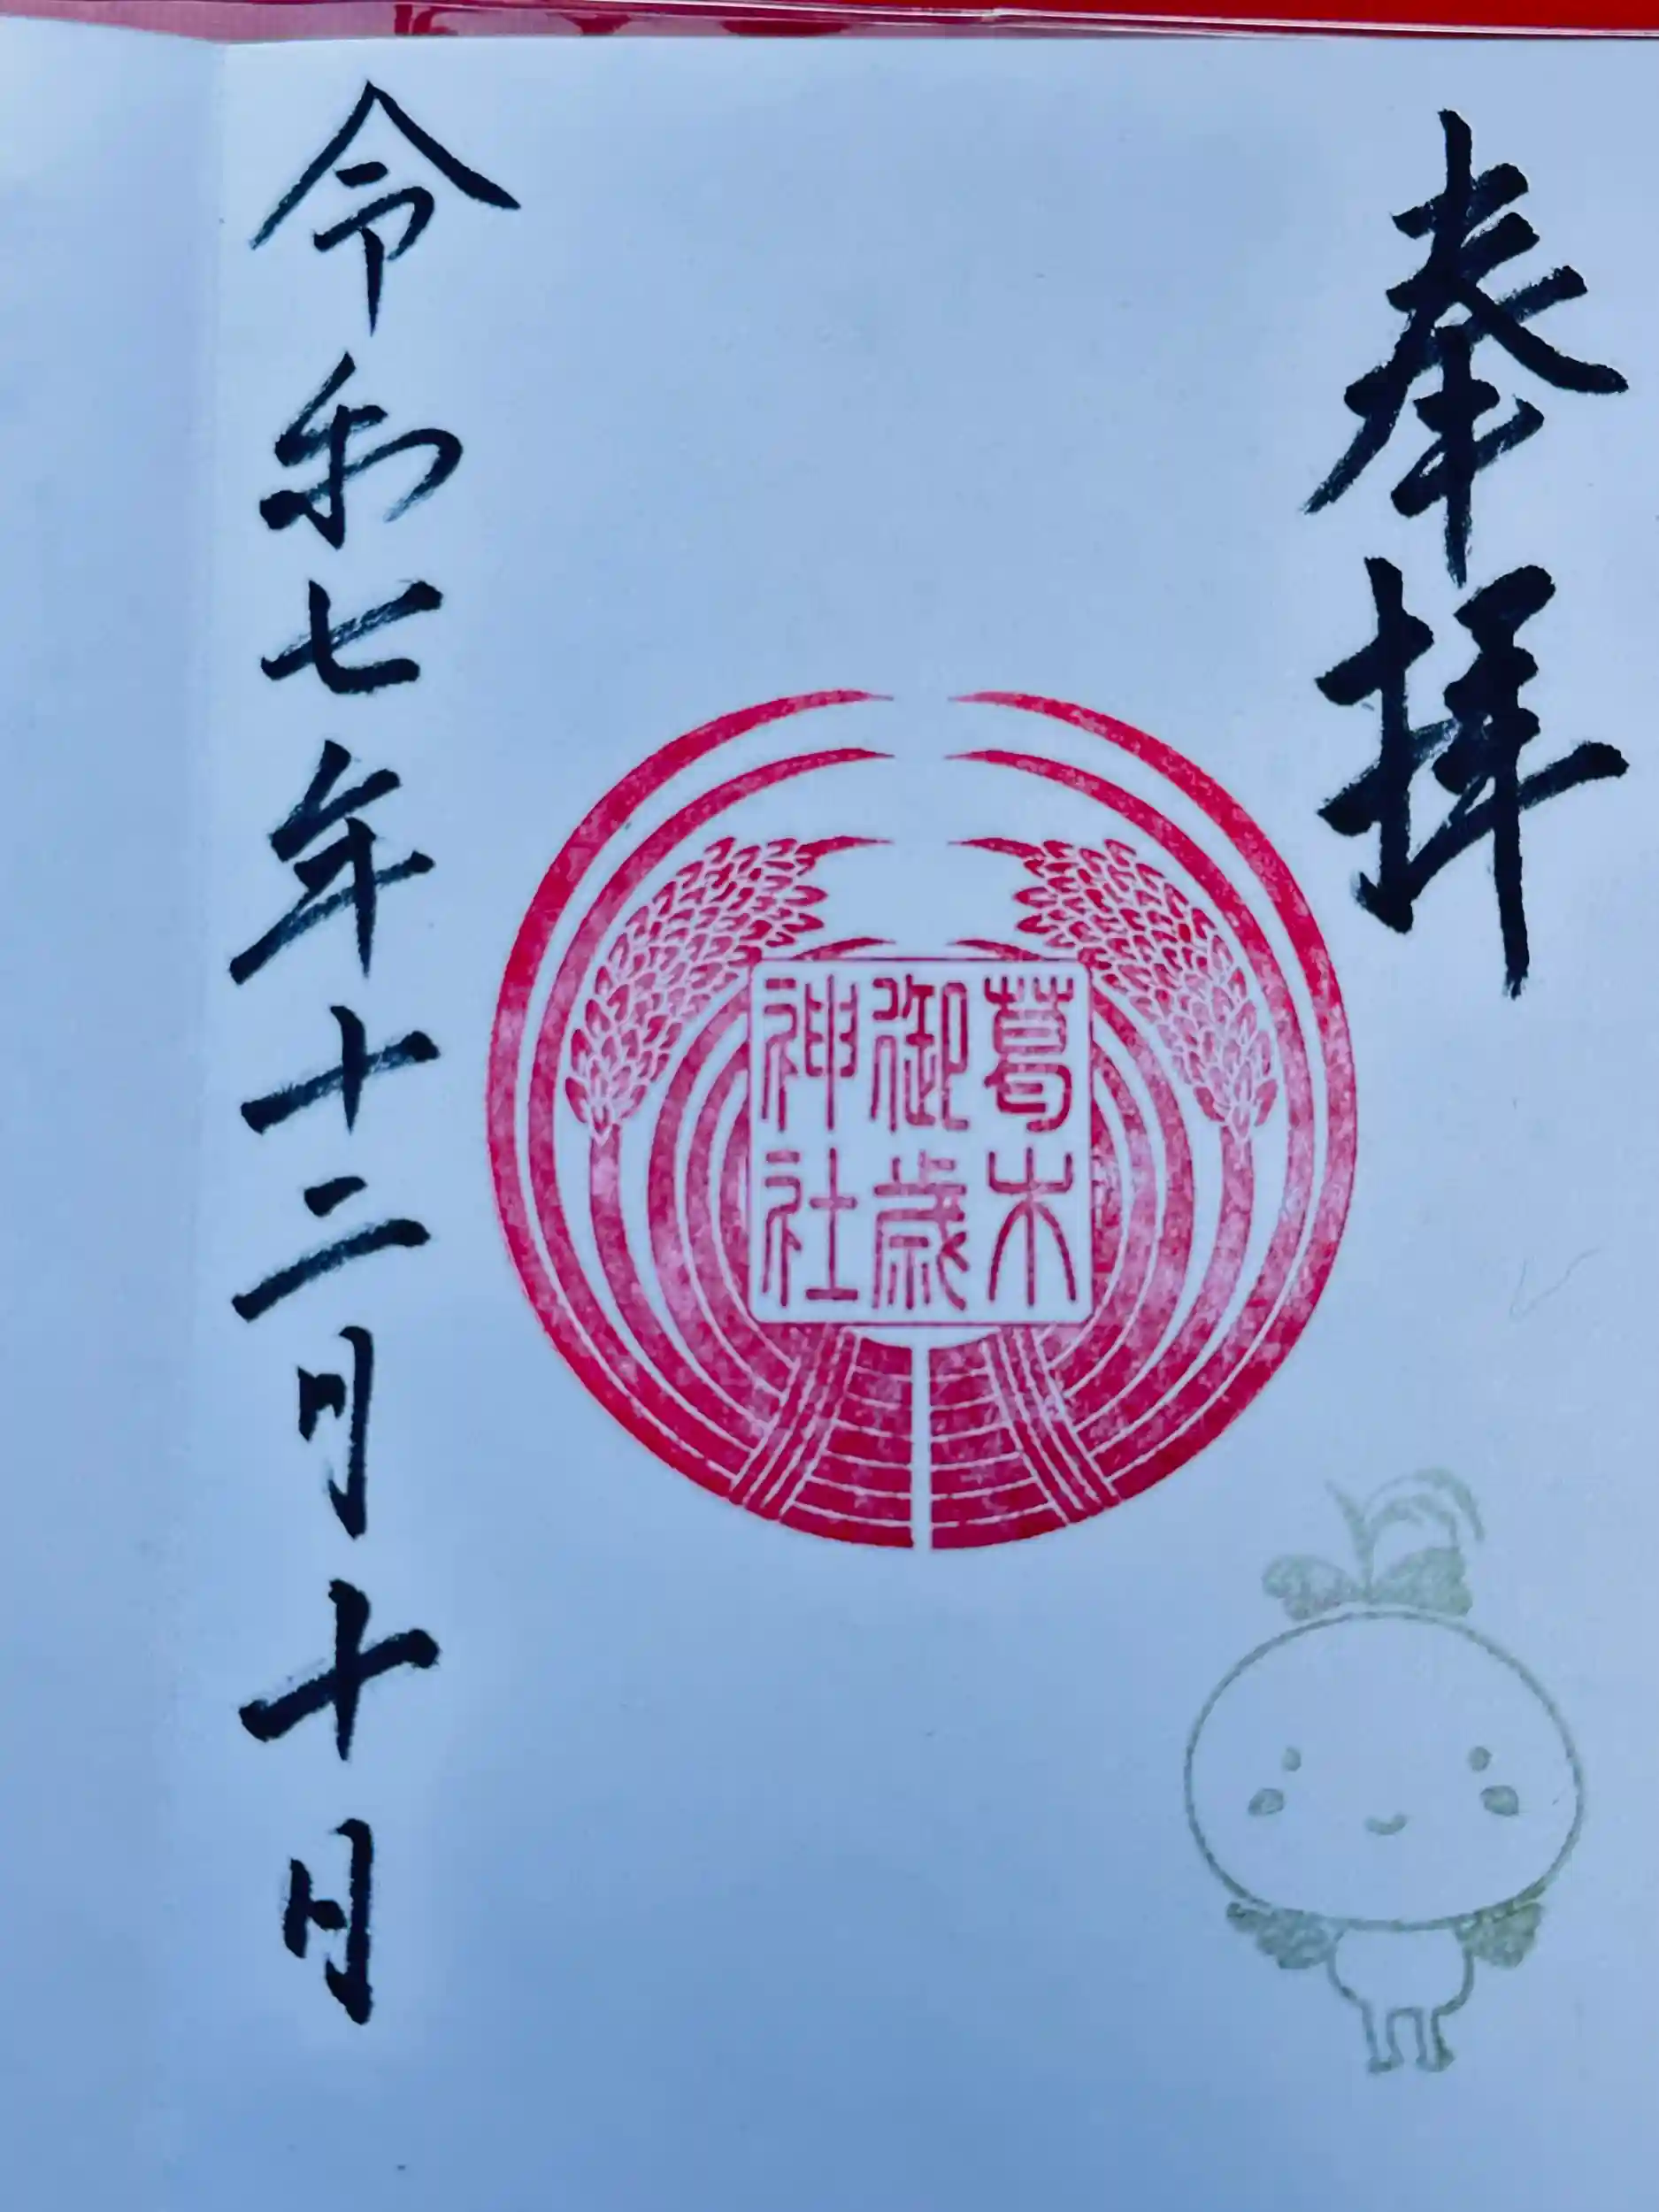 奉拝
葛木
御歳
神社
令和七年十二月十日